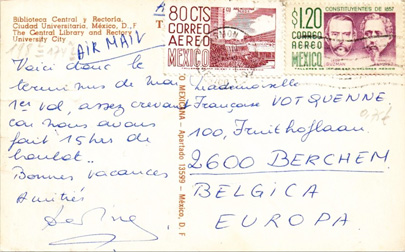 Biblioteca Central y Rectoría.
Ciudad Universitaria, México, D., F
The Central Library and Rectory
University City
AIR MAIL
Voici donc le
terminus de ma
1er vol, assez crevant
car nous avons
fait 15 hrs de
boulot..
Bonnes vacances
Amitiés
O. MEDINA - Apartado 13599 - México, D. F
80 CTS
CORREO
AEREO
MEXICO
CONSTITUYENTES DE 1857
$1.20
CORREO
AEREO
MEXICO
GUZMAN
Mademoiselle
Françoise VOTQUENNE
100, Fruithoflaan
2600 BERCHEM
BELGICA
EUROPA